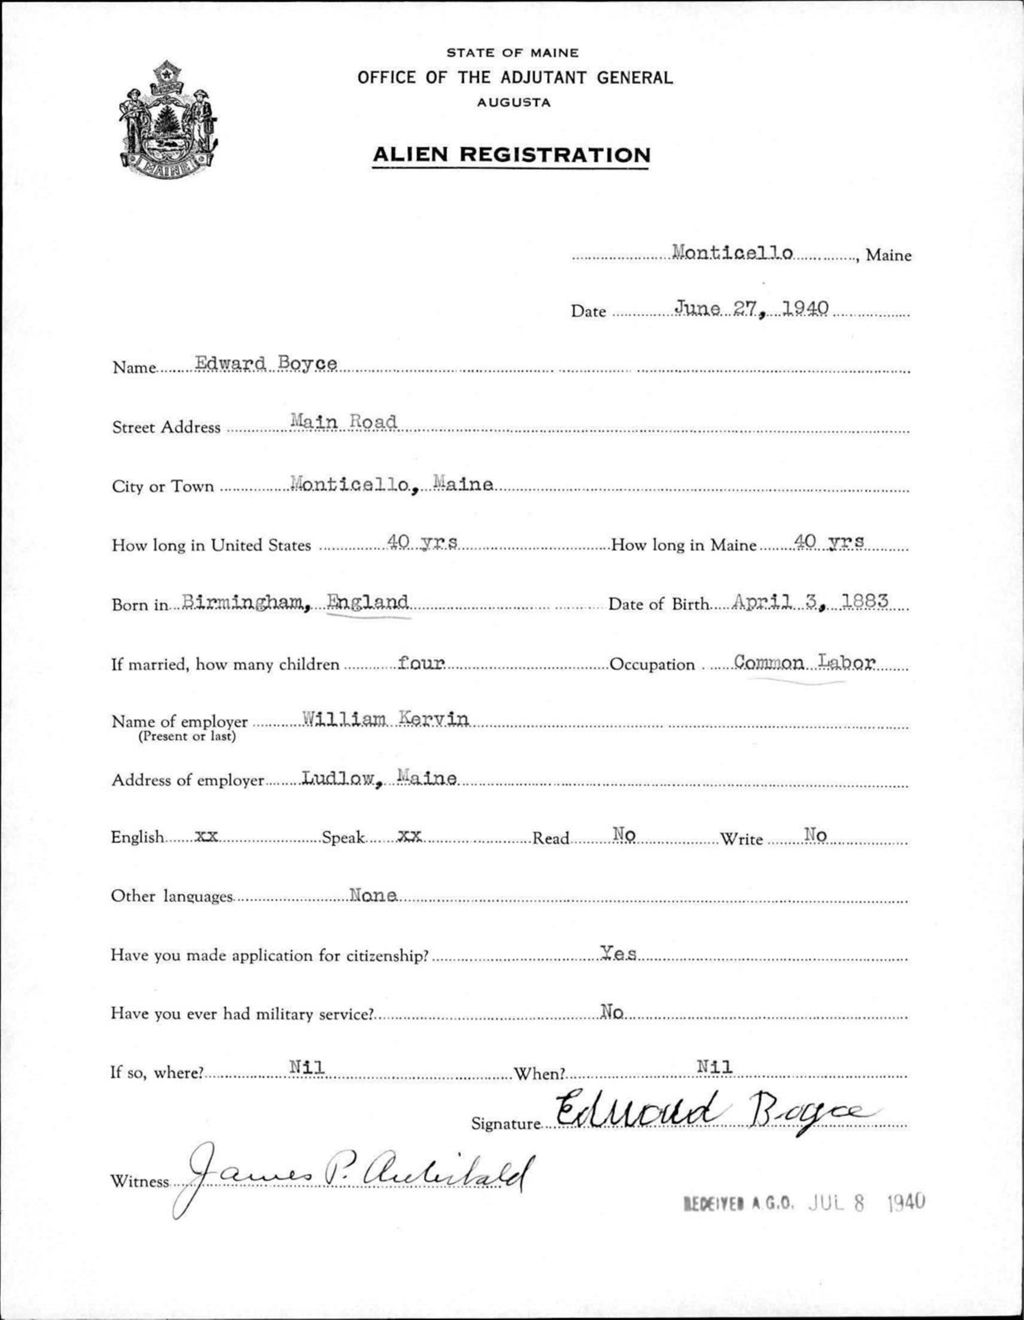 STATE OF MAINE
OFFICE OF THE ADJUTANT GENERAL
AUGUSTA
ALIEN REGISTRATION
MAINE
Monticello, Maine
Date June 27, 1940
Name Edward Boyce
Street Address Main Road
City or Town Monticello, Maine
How long in United States 40 yrs How long in Maine 40 yrs
Born in Birmingham, England Date of Birth April 3, 1883
If married, how many children four Occupation Common Labor
Name of employer William Kervin
(Present or last)
Address of employer Ludlow, Maine
English xx Speak xx Read No Write No
Other languages None
Have you made application for citizenship? Yes
Have you ever had military service? No
If so, where? Nil When? Nil
Signature Edward Boyce
Witness James P. Archibald
RECEIVED A.G.O. JUL 8 1940